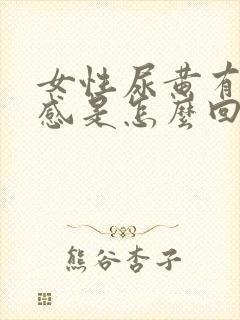 女性尿黄有
感是怎麼回
熊谷杏子